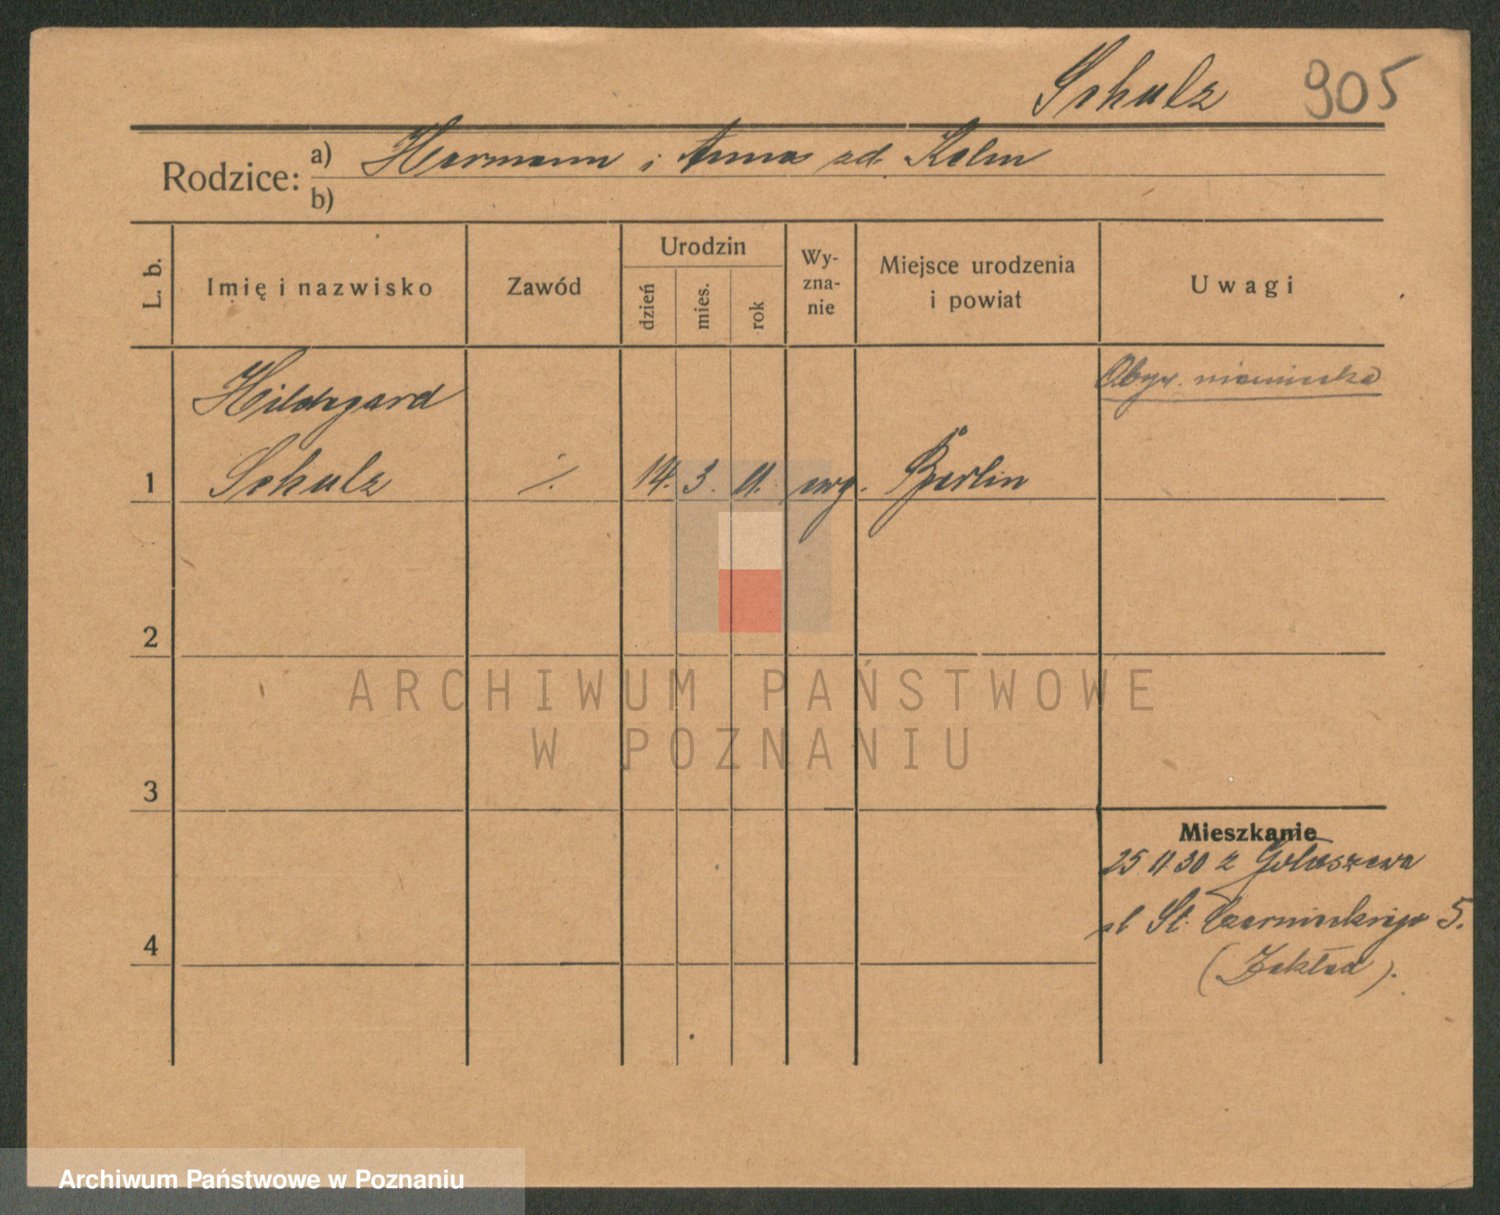 Schulz 905
Rodzice: a) Hermann i Anna zd. Kelm
b)
L. b.
Imię i nazwisko
Zawód
Urodzin
dzień
mies.
rok
Wy-
zna-
nie
Miejsce urodzenia
i powiat
Uwagi
Hildegard
Obyw. niemiecka
1 Schulz ·/. 14. 3. 11. ewg. Berlin
2
ARCHIWUM PAŃSTWOWE
W POZNANIU
3
Mieszkanie
25 11 30 z Gołaszewa
ul St. Czarnieckiego 5.
4
(Zakład).
Archiwum Państwowe w Poznaniu